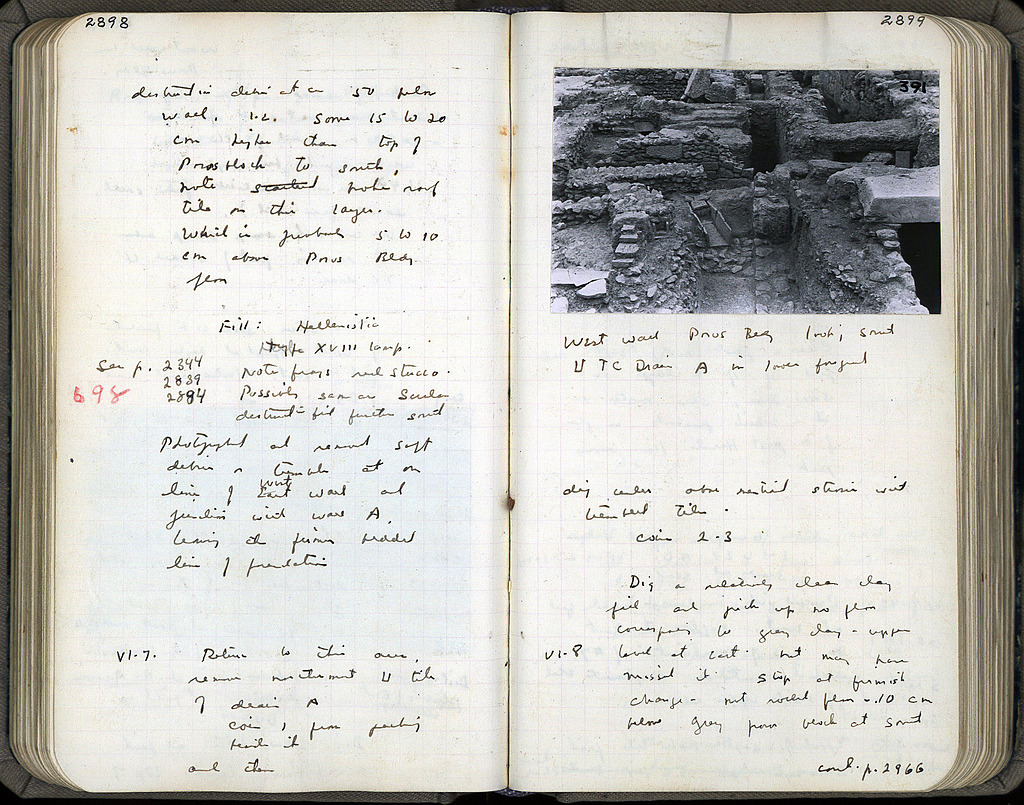 2898
destruction debris at ca 50 below
wall. i.e. some 15 to 20
cm higher than top of
Poros block to south,
note broken roof
tile in this layer.
Which is probably 5 to 10
cm above Poros Bldg
floor
Fill: Hellenistic
Type XVIII lamp.
See p. 2344
2839
2884
698
Note frags red stucco.
Possibly same as Sullan
destruction fill further south
Photograph and remove soft
debris at
line of West wall at
junction with wall A,
leaving the
line of foundation
VI-7. Return to this area,
remove northernmost U tile
of drain A
coin 1 from packing
beside it
and then
2899
391
West wall Poros Bldg look'g South
U TC Drain A in lower foreground
dig under above
tile.
coin 2-3
Dig a relatively clean clay
fill and pick up no floor
corresp'g to gray clay - upper
VI-8 level at East. but may have
missed it. Stop at firmish
change - not rocked floor -.10 cm
below Gray poros block at South
cont. p. 2966